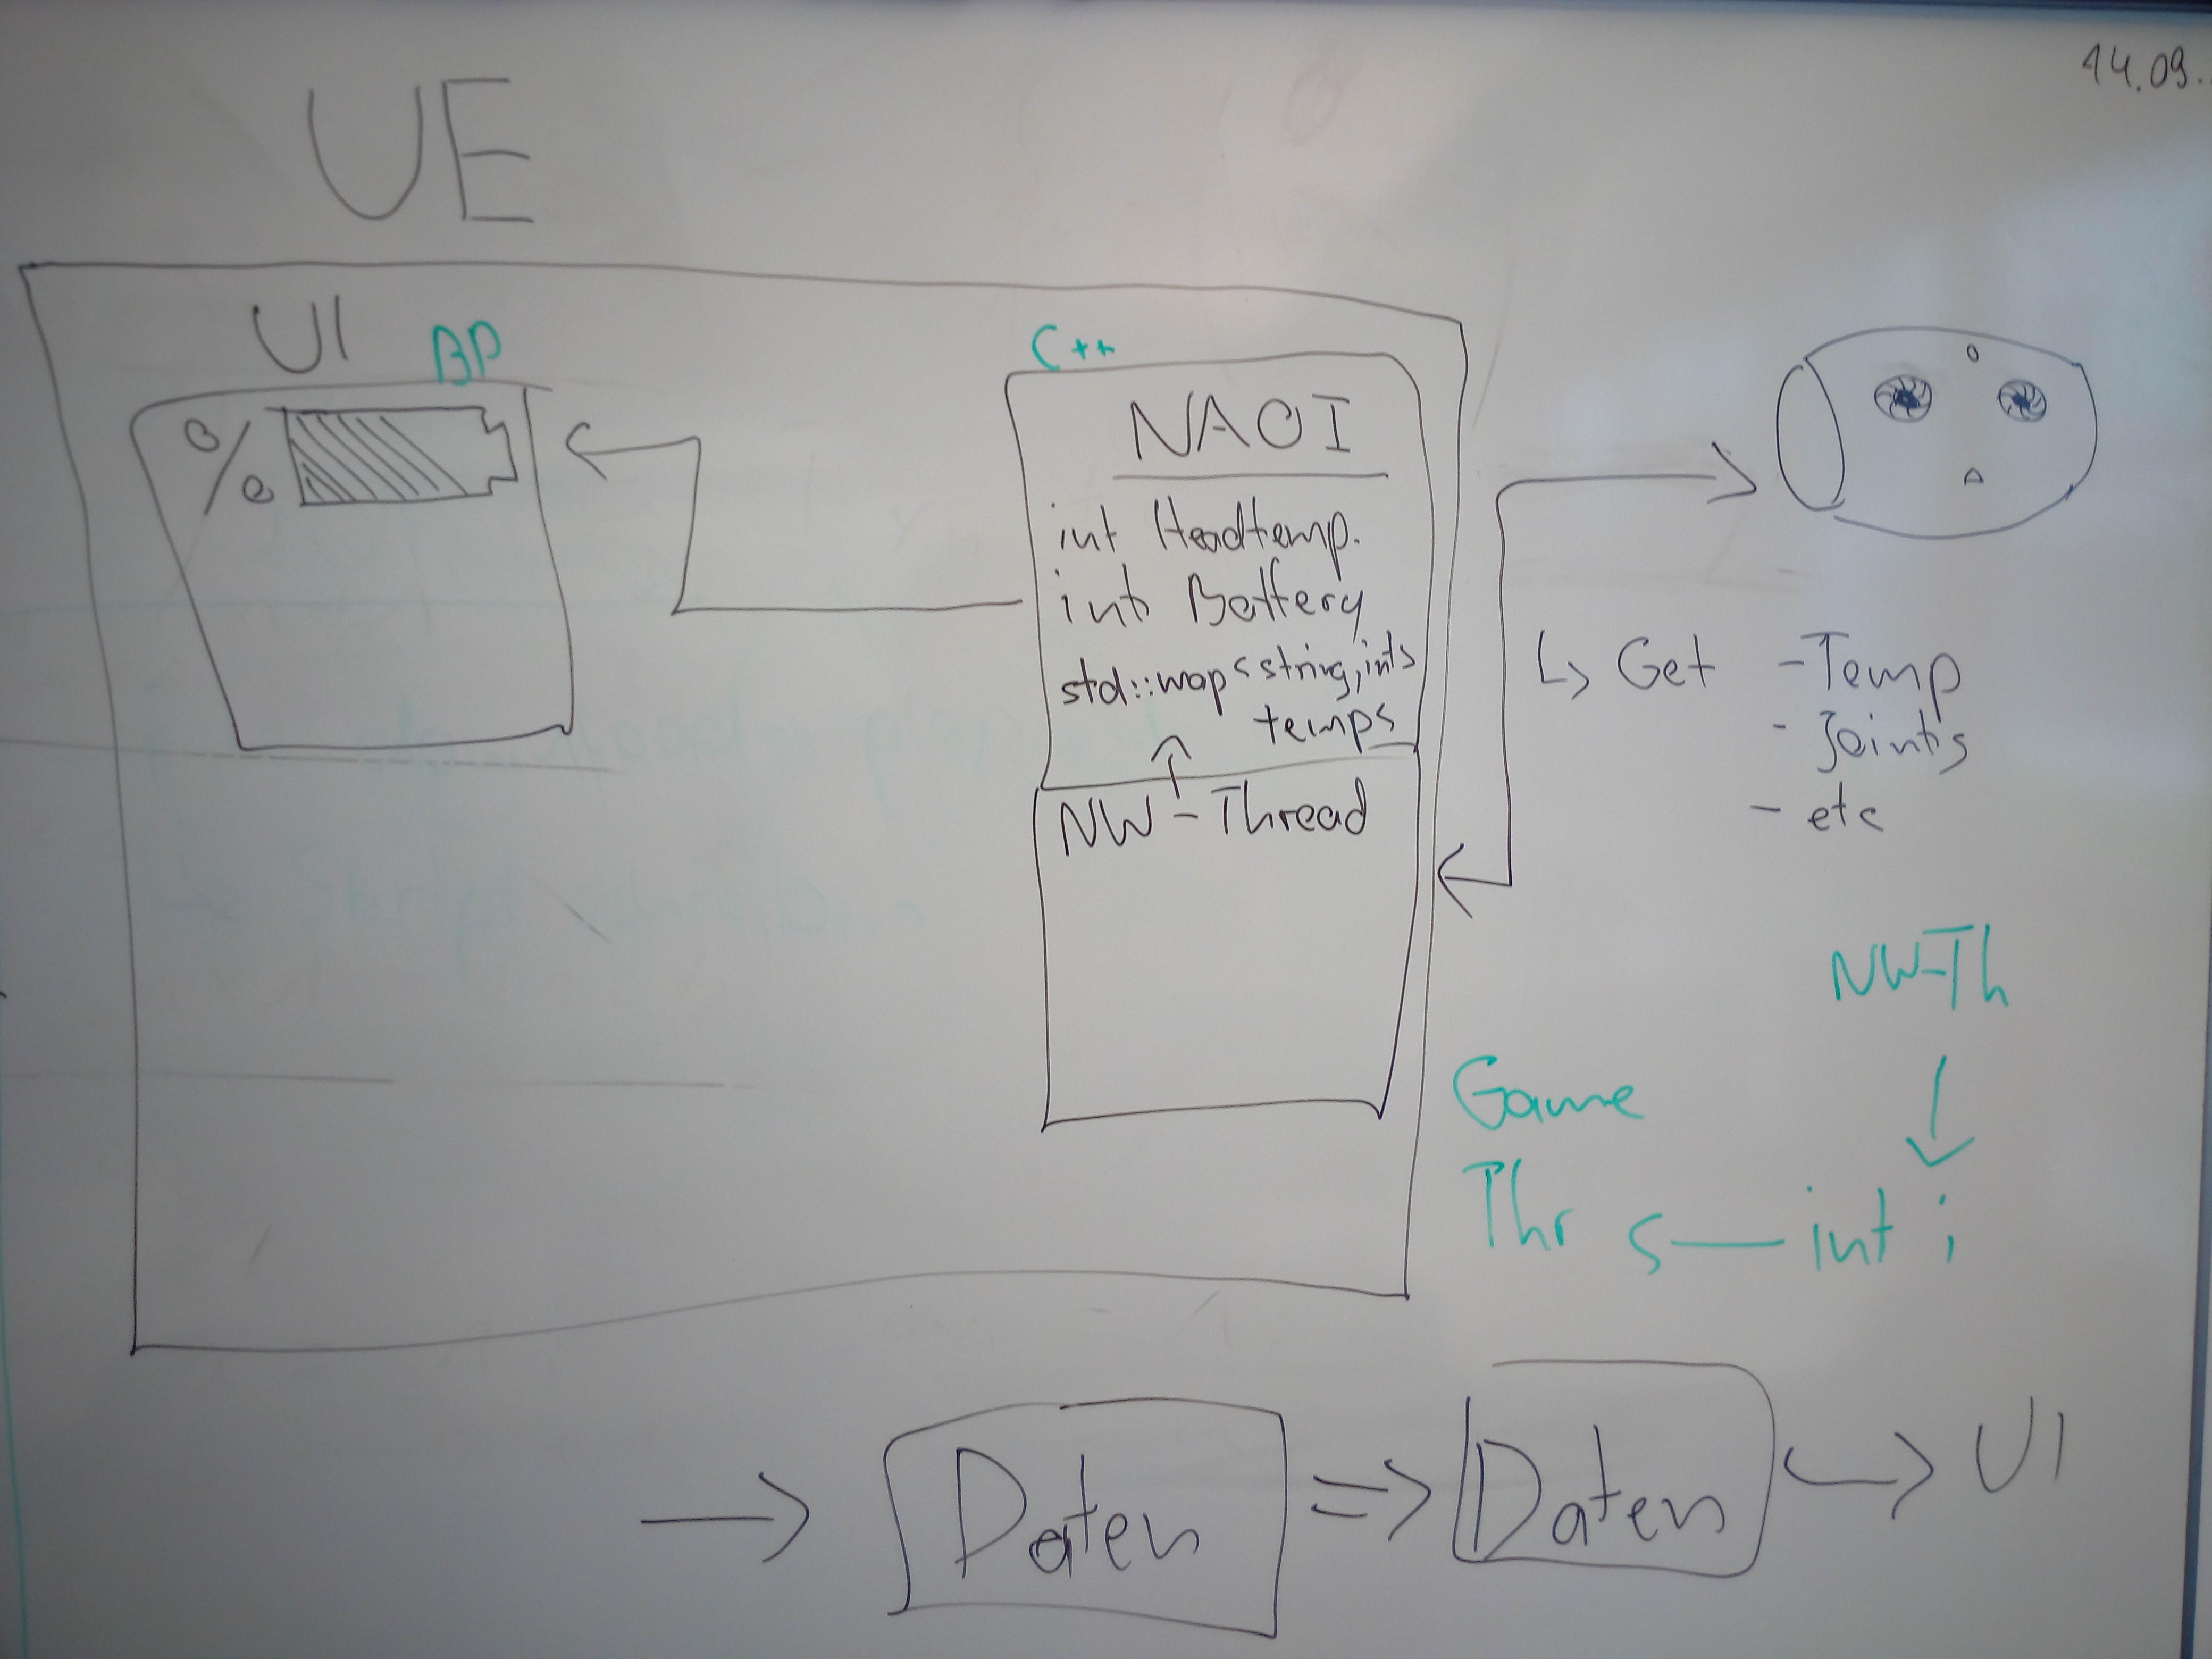 14.09.
UE
UI BP
%
C++
NAOI
int Headtemp.
int Battery
std::map<string,int>
temps
NW-Thread
↳ Get - Temp
- Joints
- etc
NW-Th
Game
Thr int i
Daten => Daten UI